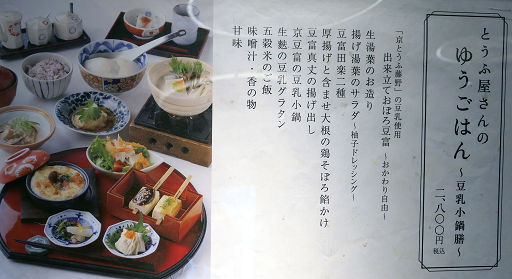 とうふ屋さんの
ゆうごはん
～豆乳小鍋膳～
二、八〇〇円税込
「京とうふ藤野」の豆乳使用
出来立ておぼろ豆富 ～おかわり自由～
生湯葉のお造り
揚げ湯葉のサラダ～柚子ドレッシング～
豆富田楽二種
厚揚げと含ませ大根の鶏そぼろ餡かけ
豆富真丈の揚げ出し
京豆富の豆乳小鍋
生麩の豆乳グラタン
五穀米のご飯
味噌汁・香の物
甘味